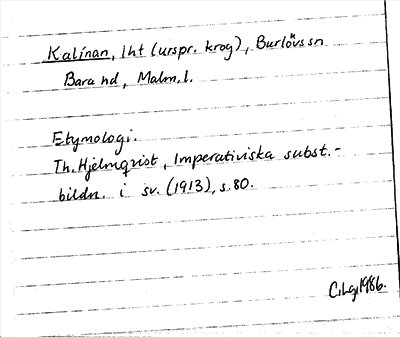 Kalinan, lht (urspr. krog), Burlövs sn
Bara hd, Malm. l.
Etymologi.
Th. Hjelmqvist, Imperativiska subst.-
bildn. i sv. (1913), s. 80.
C.Lg. 1986.